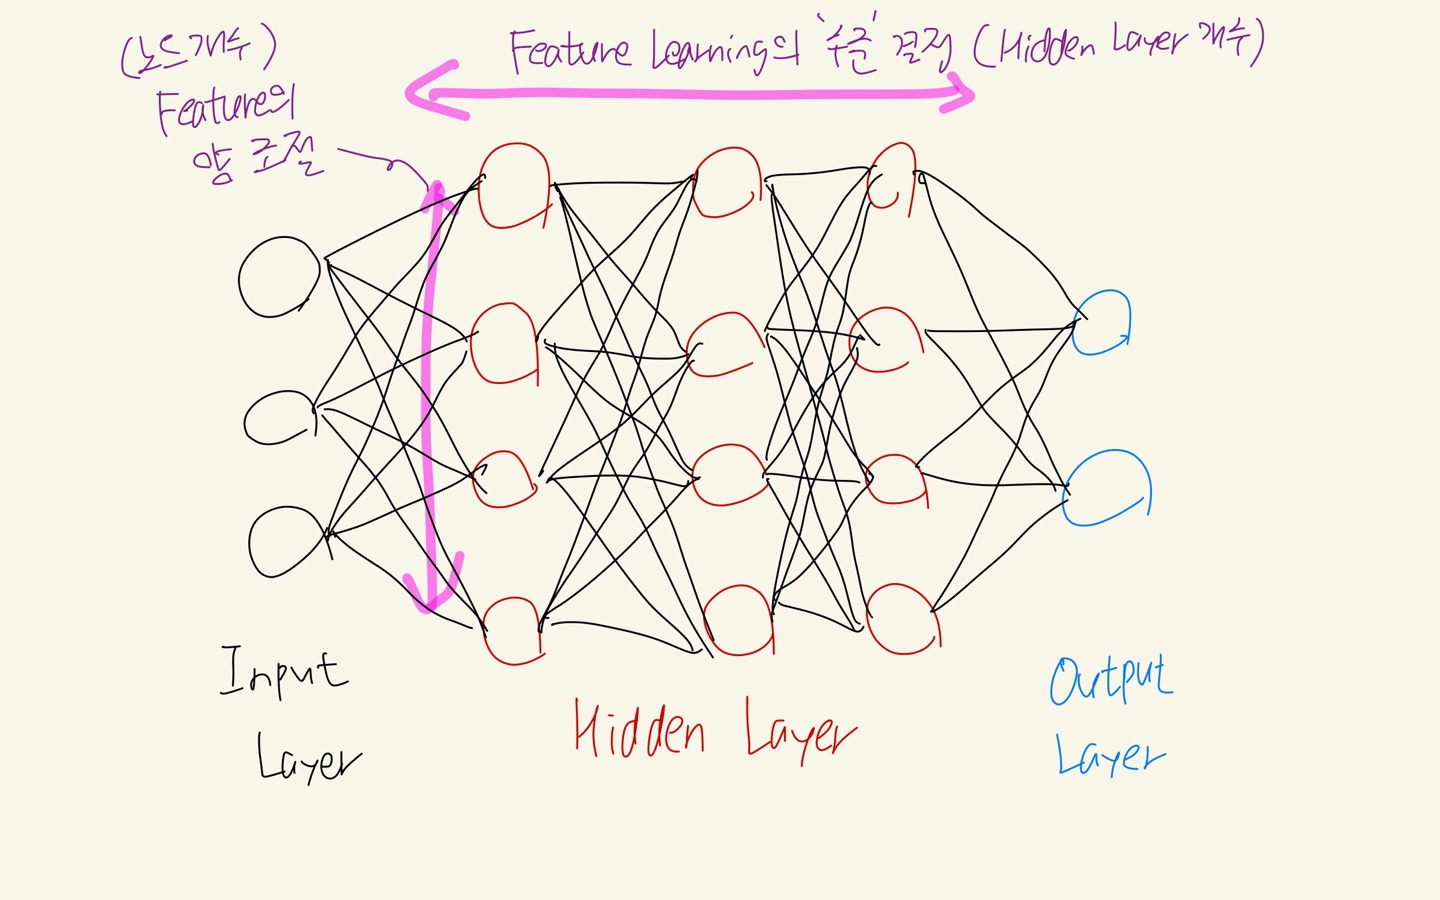 (노드 개수)
Feature의
양 조절
Feature Learning의 '수준' 결정 (Hidden Layer 개수)
Input
Layer
Hidden Layer
Output
Layer